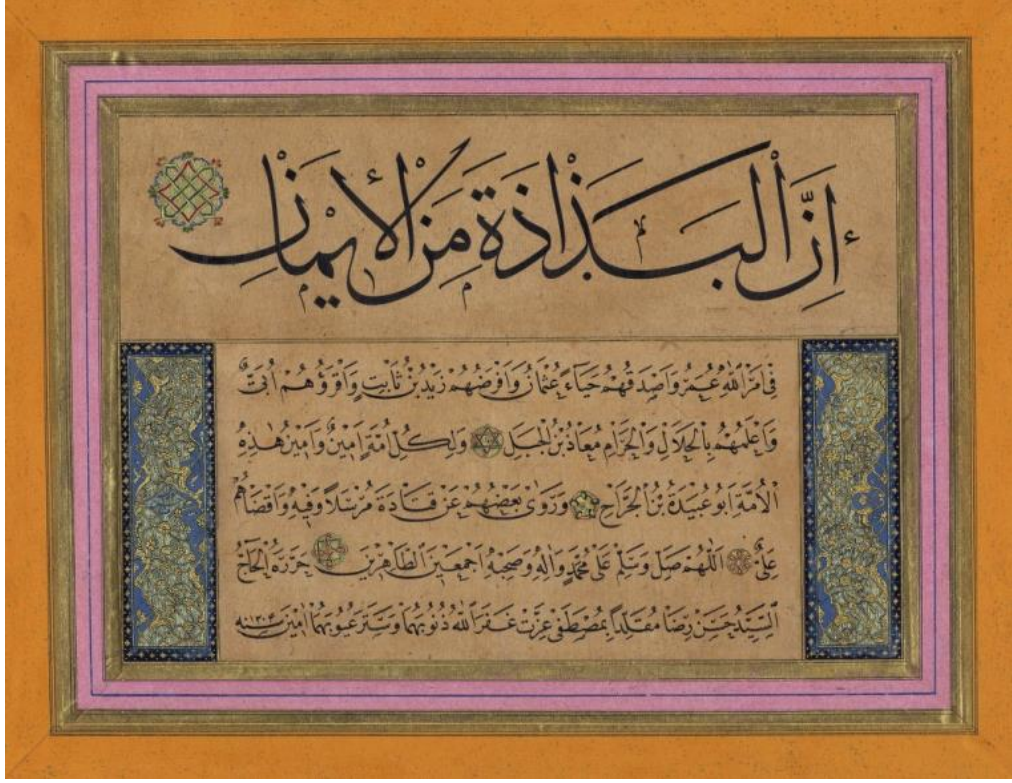 إِنَّ الْبَذَاذَةَ مِنَ الْأِيمَانِ
فِي اَمْرِ اللهِ عُمَرُ وَاَصْدَقُهُمْ حَيَاءً عُثْمَانُ وَاَفْرَضُهُمْ زَيْدُ بْنُ ثَابِتٍ وَاَقْرَؤُهُمْ اُبَىٌّ
وَاَعْلَمُهُمْ بِالْحَلَالِ وَالْحَرَامِ مُعَاذُ بْنُ الْجَبَلِ وَلِكُلِّ اُمَّةٍ اَمِينٌ وَاَمِينُ هٰذِهِ
الْاُمَّةِ اَبُو عُبَيْدَةَ بْنُ الْجَرَّاحِ وَرَوٰى بَعْضُهُمْ عَنْ قَتَادَةَ مُرْسَلاً وَفِيهِ وَاَقْضَاهُمْ
عَلِىٌّ اَللّٰهُمَّ صَلِّ وَسَلِّمْ عَلٰى مُحَمَّدٍ وَاٰلِهِ وَصَحْبِهِ اَجْمَعِينَ الطَّاهِرِينَ حَرَّرَهُ الْحَاجُّ
السَّيِّدُ حَسَنْ رِضَا مُقَلِّداً بِمُصْطَفٰى عِزَّتْ غَفَرَ اللهُ ذُنُوبَهُمَا وَسَتَرَ عُيُوبَهُمَا اٰمِينَ سنه